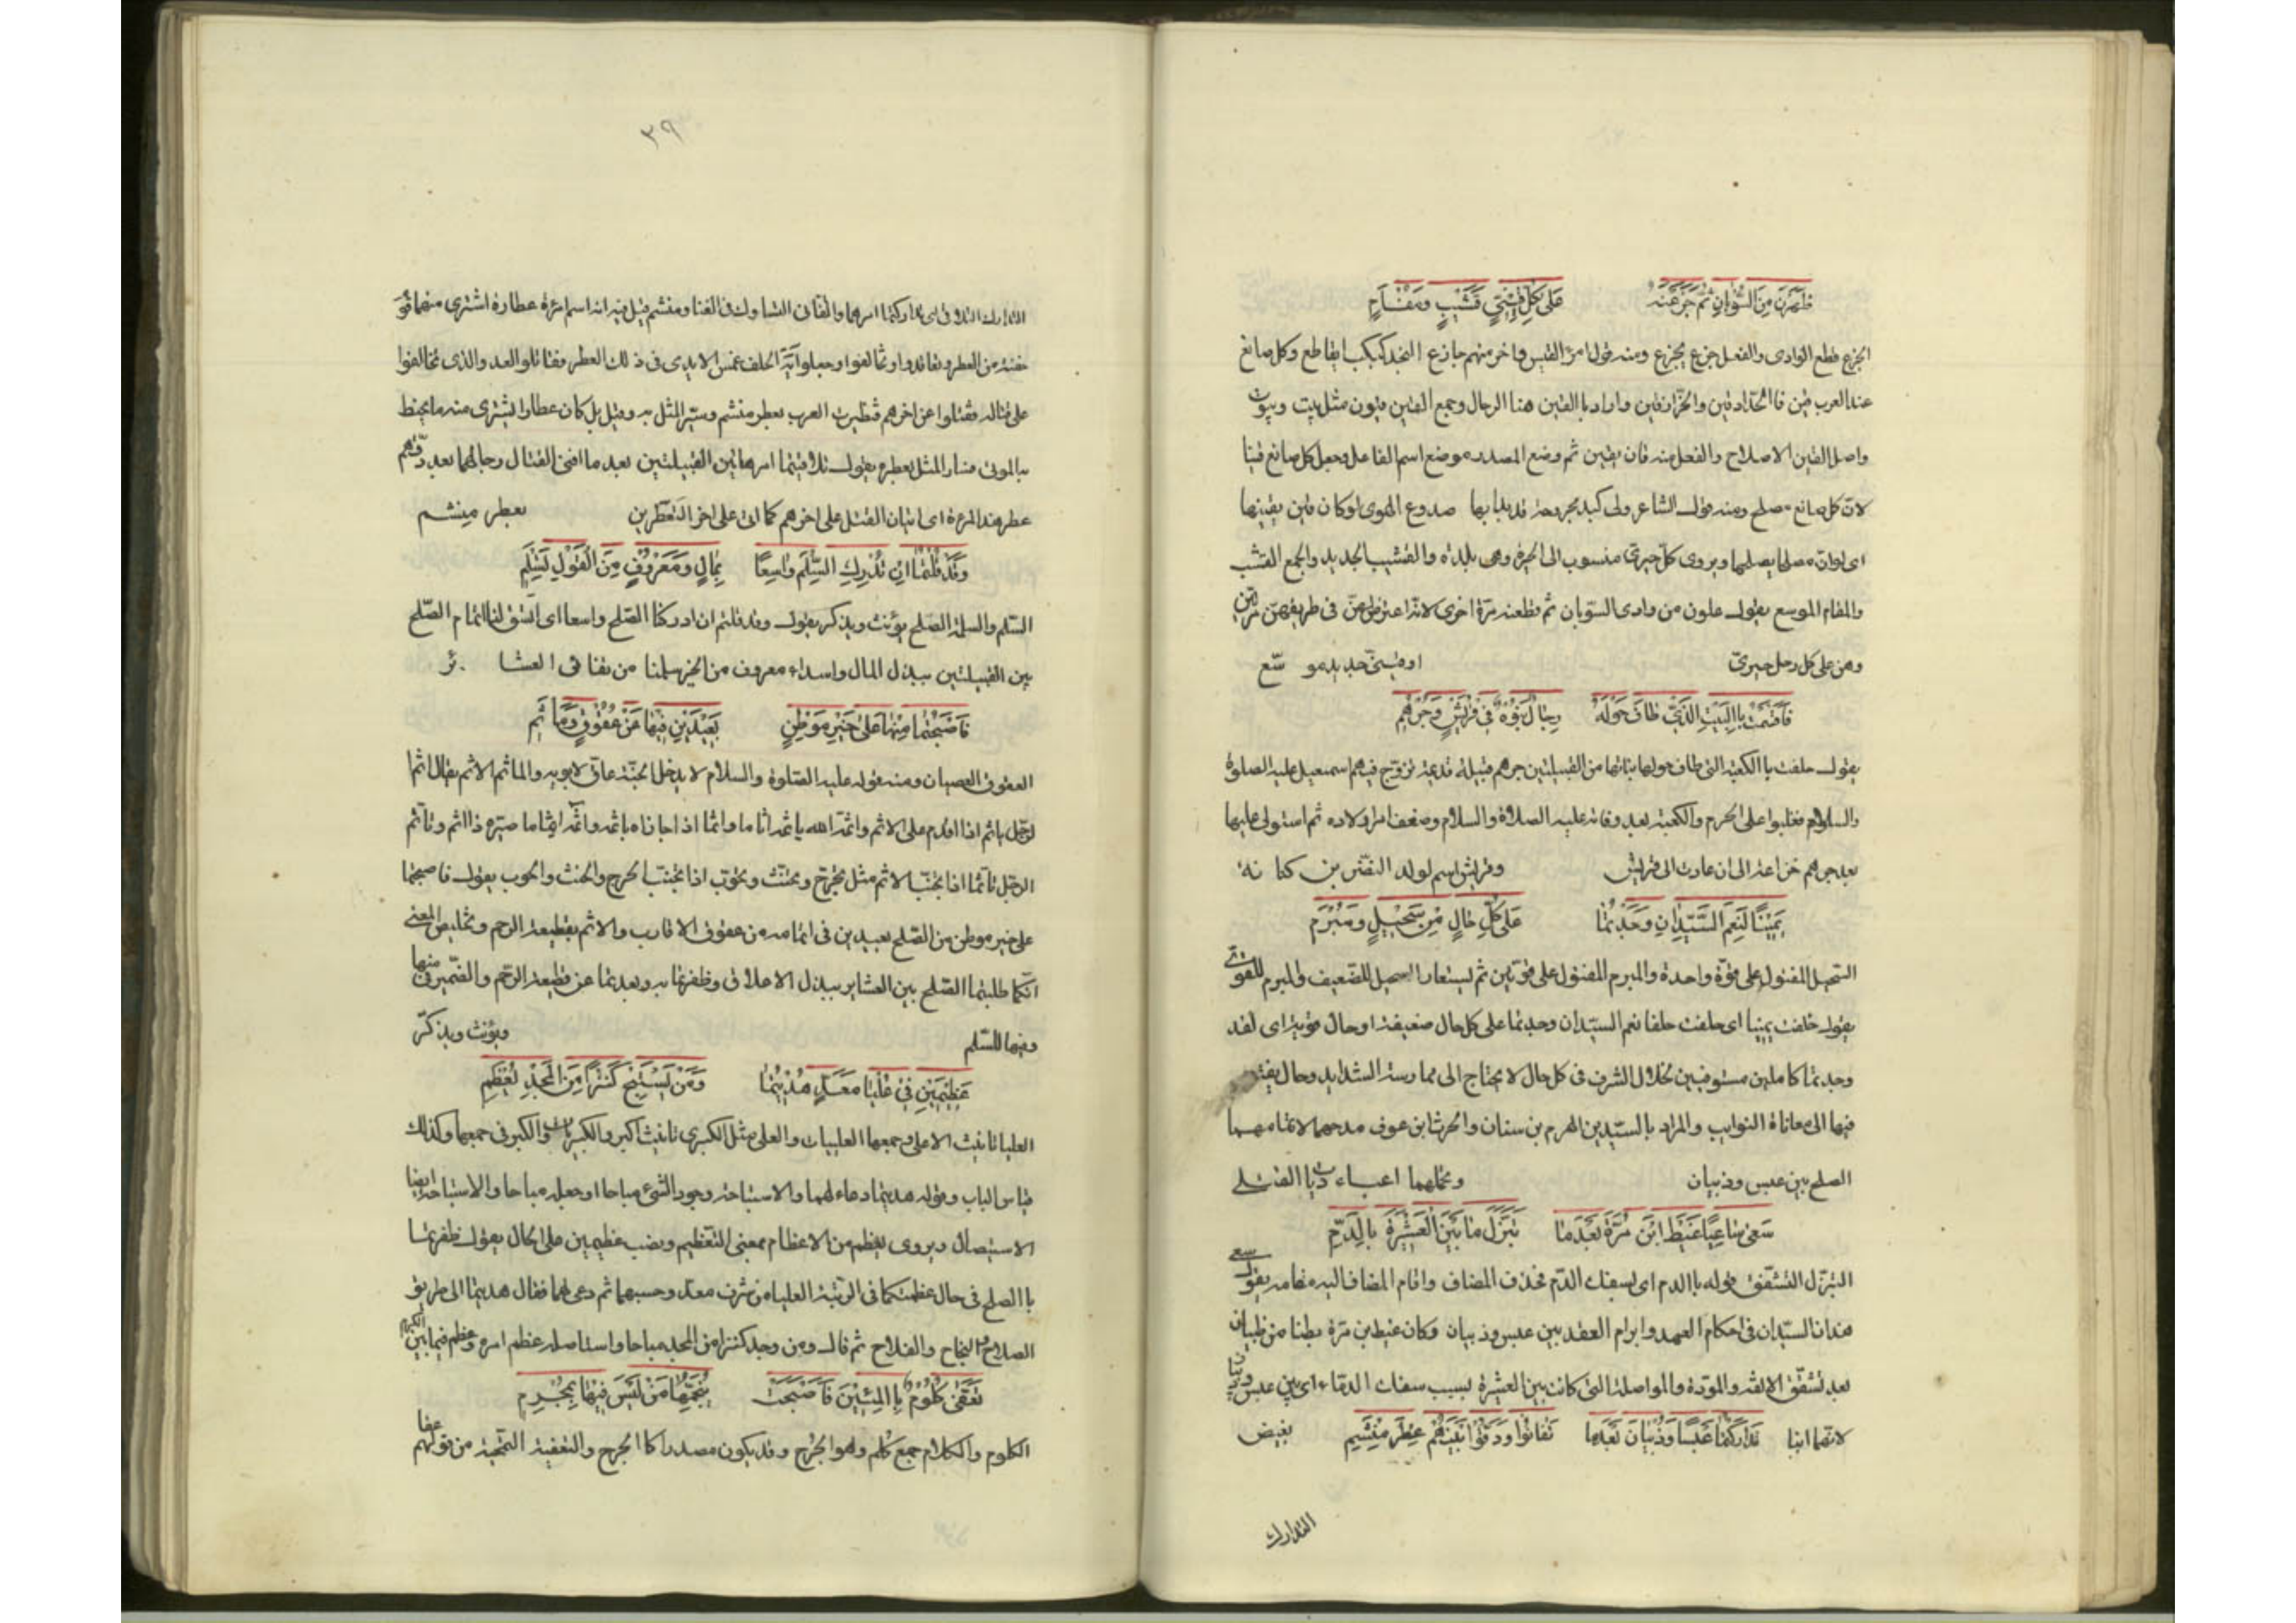 ظهرن من السوبان ثم جزعنه على كل قيني قشيب ومفـام
الجزع قطع الوادي والفعل جزع يجزع ومنه قول امرء القيس وآخر منهم جازع النجد كبكب ايقاطع وكل صانع
عند العرب قين فا الحداد قين والخراز قين واراد با القين هنا الرحال وجمع القين قيون مثل بيت وبيوت
واصل القين الاصلاح والفعل منه قان يقين ثم وضع المصدر موضع اسم الفاعل وجعل كل صانع قينا
لان كل صانع مصلح ومنه قول الشاعر ولى كبد مجروحة قد بدا بها صدوع الهوى لو كان قين يقينها
اى لو ان مصلحا يصلحها ويروى كل حيرى منسوب الى الحيرة وهى بلدة والقشيب الجديد والجمع القشب
والمفام الموسع يقول علون من وادى السوبان ثم قطعنه مرة اخرى لانه اعترض لهن فى طريقهن مرتين
وهن على كل رحل حيرى او قينى جديد مو سع
فاقسمت با البيت الذى طاف حوله رجال بنوه فى قريش وجرهم
يقول حلفت با الكعبة التى طاف حولها بناتها من القبيلتين جرهم قبيلة قديمة تزوج فيهم اسمعيل عليه الصلوة
والسلام فغلبوا على الحرم والكعبة بعد وفاته عليه الصلاة والسلام وضعف امر اولاده ثم استولى عليها
بعد جرهم خزاعة الى ان عادت الى قريش وقريش اسم لولد النضر بن كنا نة
يمينا لنعم السيدان وجدتما على كل حال من سحيل ومبرم
السحيل المفتول على قوة واحدة والمبرم المفتول على قوتين ثم يستعار السحيل للضعيف والمبرم للقوى
يقول حلفت يمينا اى حلفت حلفا نعم السيدان وجدتما على كل حال ضعيفة او حال قوية اى لقد
وجدتما كاملين مستوفيين لخلال الشرف فى كل حال لا يحتاج الى ممارسة الشدايد وحال يفتقر
فيها الى معاناة النوايب والمراد بالسيدين الهرم بن سنان والحرث ابن عوف مدحهما لاتمامهما
الصلح بين عبس وذبيان وتحملهما اعبـاء ديات القتـلى
سعى ساعيا غيظ ابن مرة بعدما تبزل ما بين العشيرة بالدم
التبزل التشقق قوله باالدم اى بسفك الدم فحذف المضاف واقام المضاف اليه مقامه يقول سعى
هذان السيدان فى احكام العهد وابرام العقد بين عبس وذبيان وكان غيظ بن مرة بطنا من ذبيان
بعد تشقق الالفة والمودة والمواصلة التى كانت بين العشيرة بسبب سفك الدماء اى بين عبس وذبيان
لانهما ابنا تداركتما عبسا وذبيان بعدما تفانوا ودقوا بينهم عطر منشم بغيض
التدارك
٣٩
التدارك التلافى اى تداركتما امرهما والتفانى التشارك فى الفنا ومنشم قيل فيه انه اسم امرءة عطارة اشترى منها قو
حفنة من العطر وتعاقدوا وتحالفوا وجعلوا آية الحلف غمس الايدى فى ذلك العطر فقاتلوا العد والذى تحالفوا
على قتاله فقتلوا عن اخرهم فتطيرت العرب بعطر منشم وسير المثل به وقيل بل كان عطارا يشترى منه ما يحنط
به الموتى فسار المثل بعطره يقول تلافيتما امر هاتين القبيلتين بعد ما افنى القتال رجالهما بعد دقهم
عطر هذه المرءة اى اتيان القتل على اخرهم كما اتى على اخر المتعطرين بعطر منشم
وقد قلتما ان ندرك السلم واسعا بمال ومعروف من القول نسلم
السلم والسلم الصلح يؤنث ويذكر يقول وقد قلتم ان ادركنا الصلح واسعا اى اتفق لنا اتمام الصلح
بين القبيلتين ببذل المال واسداء معروف من الخير سلمنا من تفا نى العشا ئر
فاصبحتما منها على خير موطن بعيدين فيها عن عقوق وماثم
العقوق العصيان ومنه قوله عليه الصلوة والسلام لا يدخل الجنة عاق لابويه والماثم الاثم يقال اثم
الرجل ياثم اذا اقدم على الاثم واثمه الله ياثمه اثاما واثما اذا جازاه باثمه واثمه ايثاما صيره ذا اثم وتاثم
الرجل تاثما اذا تجنب الاثم مثل تحرج وتحنث وتحوب اذا تجنب الحرج والحنث والحوب يقول فاصبحتما
على خير موطن من الصلح بعيدين فى اتمامه من عقوق الاقارب والاثم بقطيعة الرحم وتخليص المعنى
انكما طلبتما الصلح بين العشاير ببذل الاعلاق وظفرتما به وبعدتما عن قطيعة الرحم والضمير فى منها
وفيها للسلم ويؤنث ويذكر
عظيمين فى عليا معد هديتما ومن يستبح كنزا من المجد يعظم
العليا تانيث الاعلى وجمعها العلييات والعلى مثل الكبرى تانيث اكبر والكبريات والكبر فى جمعها وكذلك
قياس الباب وقوله هديتما دعاء لهما والاستباحة وجود الشىء مباحا او جعله مباحا والاستباحة ايضا
الاستيصال ويروى يعظم من الاعظام بمعنى التعظيم ونصب عظيمين على الحال يقول ظفرتما
با الصلح فى حال عظمتكما فى الرتبة العليا من شرف معد وحسبهما ثم دعى لهما فقال هديتما الى طريق
الصلاح والنجاح والفلاح ثم قال ومن وجد كنزا من المجد مباحا واستاصله عظم امره وعظم فيما بين الكرام
تعفى الكلوم با المئين فاصبحت ينجمها من ليس فيها بمجرم
الكلوم والكلام جمع كلم وهو الجرح وقد يكون مصدرا كا الجرح والتعفية التمحية من قولهم عفا